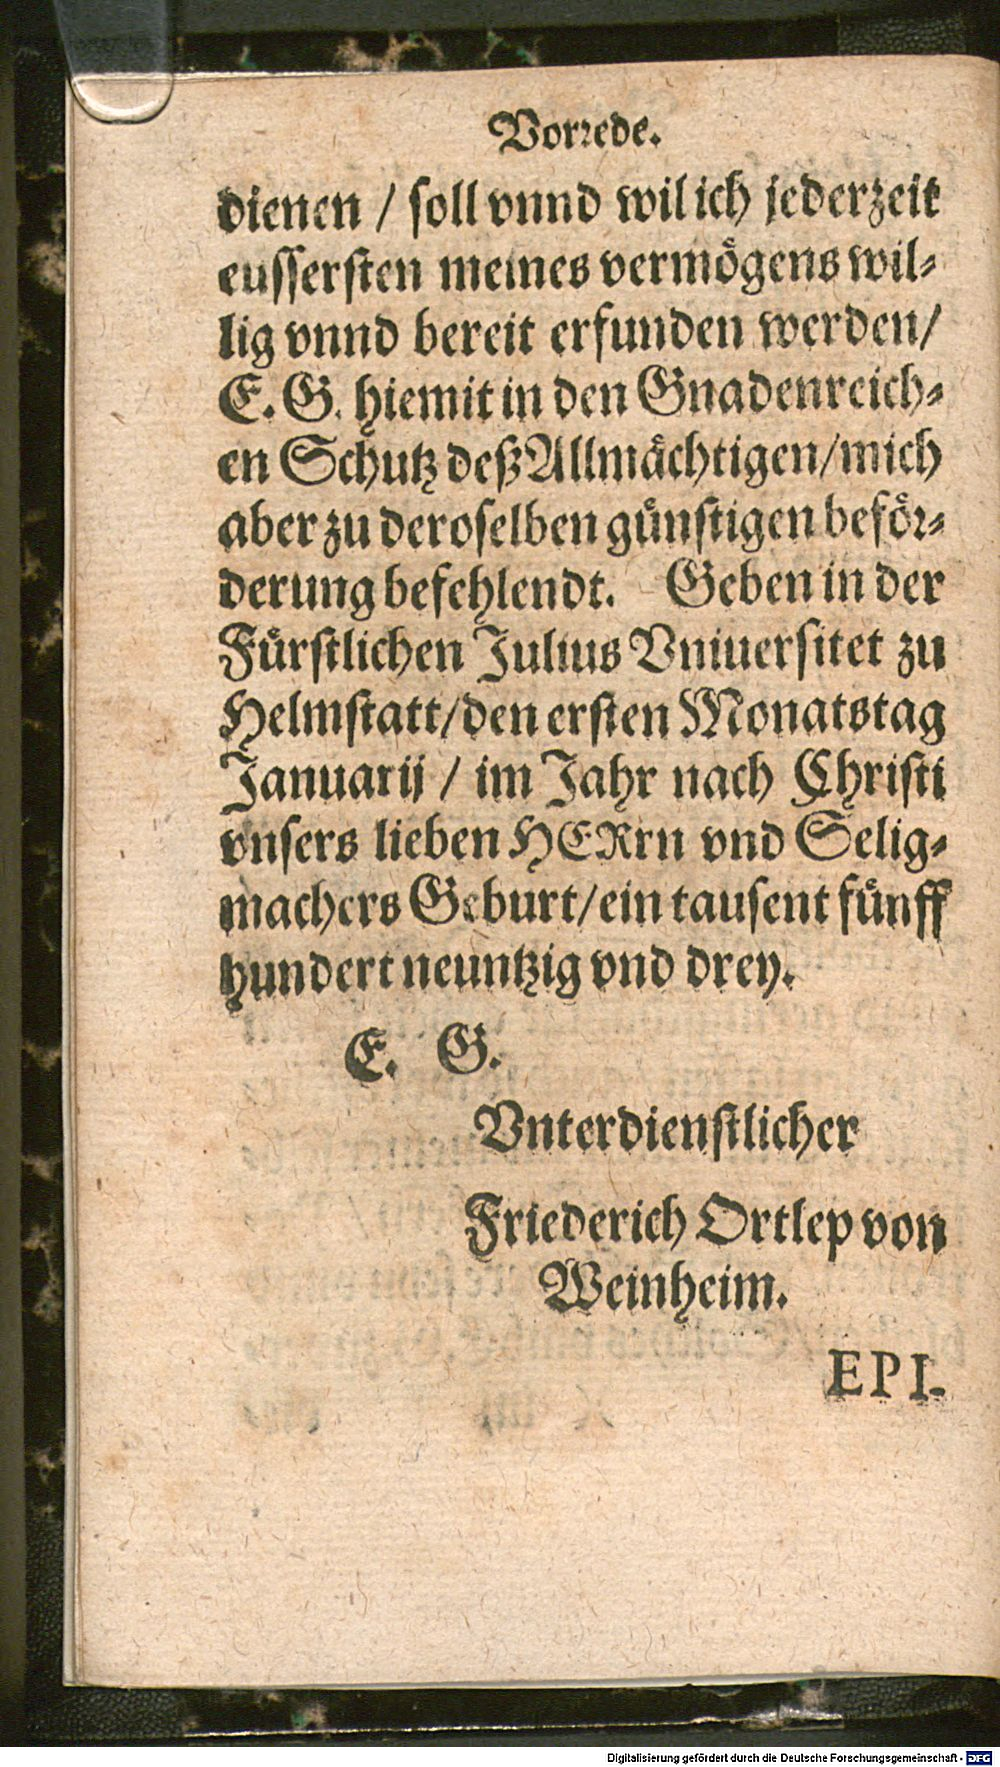 Vorꝛede.
dienen / ſoll vnnd wil ich jederzeit
euſſerſten meines vermoͤgens wil⸗
lig vnnd bereit erfunden werden/
E. G. hiemit in den Gnadenreich⸗
en Schutz deß Allmaͤchtigen/mich
aber zu deroſelben guͤnſtigen befoͤꝛ⸗
derung befehlendt. Geben in der
Fuͤrſtlichen Julius Vniuerſitet zu
Helmſtatt/den erſten Monatstag
Januarij / im Jahr nach Chriſti
vnſers lieben HERrn vnd Selig⸗
machers Geburt/ein tauſent fuͤnff
hundert neuntzig vnd drey.
E. G.
Vnterdienſtlicher
Friederich Ortlep von
Weinheim.
EPI.
Digitalisierung gefördert durch die Deutsche Forschungsgemeinschaft - DFG